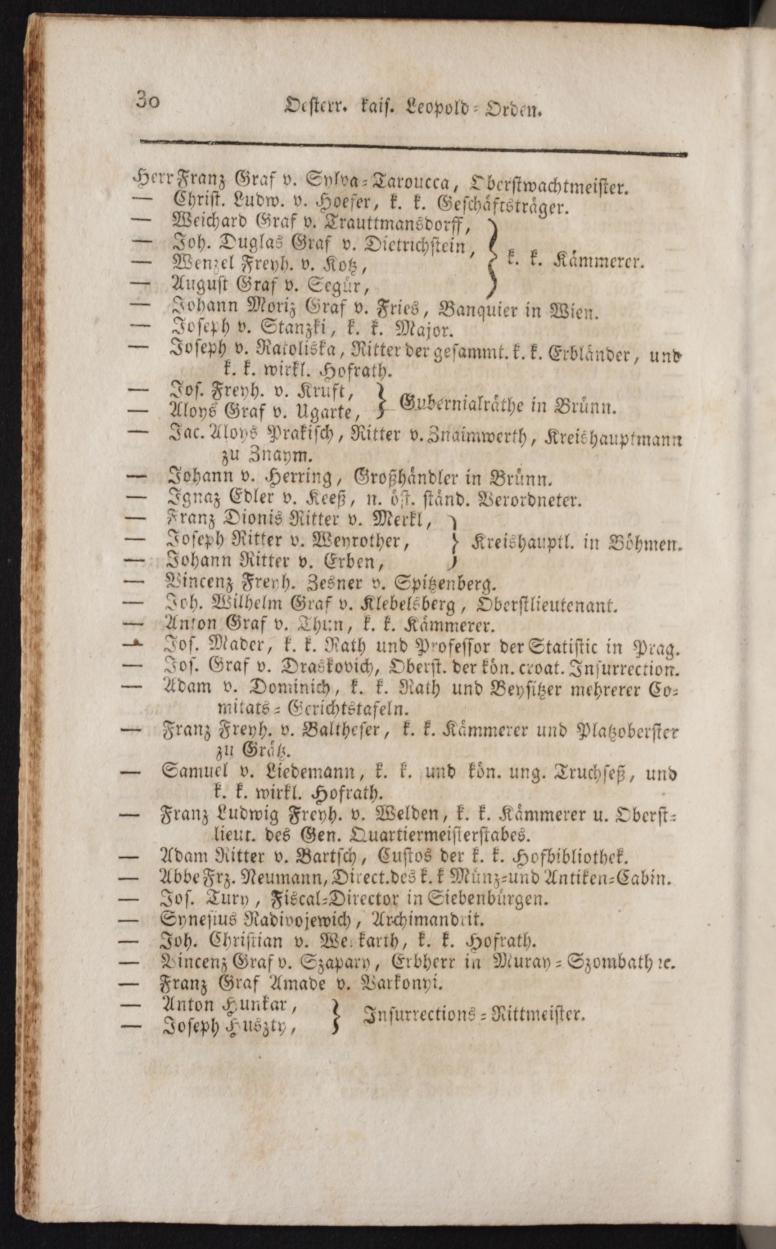 30 Oesterr. kais. Leopold-Orden.
Herr Franz Graf v. Sylva-Taroucca, Oberstwachtmeister.
— Christ. Ludw. v. Hoefer, k. k. Geschäftsträger.
— Weichard Graf v. Trauttmansdorff,
— Joh. Duglas Graf v. Dietrichstein,
— Wenzel Freyh. v. Kotz,
— August Graf v. Segür,
} k. k. Kämmerer.
— Johann Moriz Graf v. Fries, Banquier in Wien.
— Joseph v. Stanzki, k. k. Major.
— Joseph v. Ratoliska, Ritter der gesammt. k. k. Erbländer, und
k. k. wirkl. Hofrath.
— Jos. Freyh. v. Kruft,
— Aloys Graf v. Ugarte,
} Gubernialräthe in Brünn.
— Jac. Aloys Prakisch, Ritter v. Znaimwerth, Kreishauptmann
zu Znaym.
— Johann v. Herring, Großhändler in Brünn.
— Ignaz Edler v. Keeß, n. öst. ständ. Verordneter.
— Franz Dionis Ritter v. Merkl,
— Joseph Ritter v. Weyrother,
— Johann Ritter v. Erben,
} Kreishauptl. in Böhmen.
— Vincenz Freyh. Zesner v. Spitzenberg.
— Joh. Wilhelm Graf v. Klebelsberg, Oberstlieutenant.
— Anton Graf v. Thun, k. k. Kämmerer.
— Jos. Mader, k. k. Rath und Professor der Statistic in Prag.
— Jos. Graf v. Draskovich, Oberst. der kön. croat. Insurrection.
— Adam v. Dominich, k. k. Rath und Beysitzer mehrerer Co-
mitats-Gerichtstafeln.
— Franz Freyh. v. Baltheser, k. k. Kämmerer und Platzoberster
zu Grätz.
— Samuel v. Liedemann, k. k. und kön. ung. Truchseß, und
k. k. wirkl. Hofrath.
— Franz Ludwig Freyh. v. Welden, k. k. Kämmerer u. Oberst-
lieut. des Gen. Quartiermeisterstabes.
— Adam Ritter v. Bartsch, Custos der k. k. Hofbibliothek.
— Abbe Frz. Neumann, Direct. des k. k Münz- und Antiken-Cabin.
— Jos. Tury, Fiscal-Director in Siebenbürgen.
— Synesius Radivojewich, Archimandrit.
— Joh. Christian v. k. k. Hofrath.
— Vincenz Graf v. Szapary, Erbherr in Muray-Szombath ꝛc.
— Franz Graf Amade v. Varkonyi.
— Anton Hunkar,
— Joseph Huszty,
} Insurrections-Rittmeister.